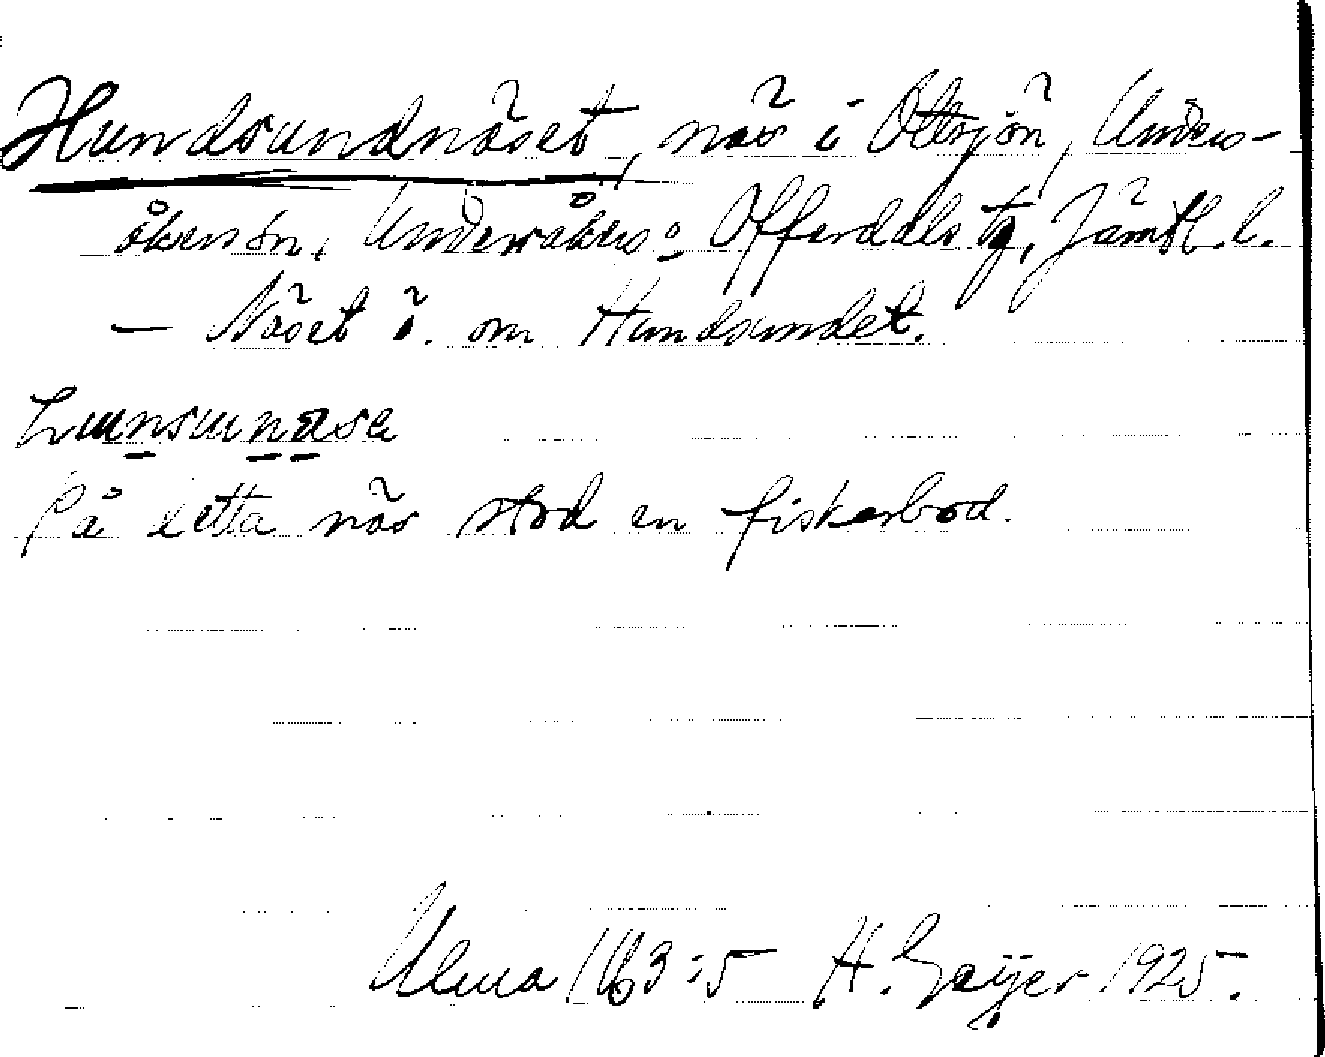 Hundsundnäset, näs i Ottsjön, Unders-
åkers sn, Undersåkers o Offerdals tg, Jämtl. l.
— Näset ö. om Hundsundet.
på detta näs stod en fiskarbod.
Ulma 1163:5 H. Geijer 1925.